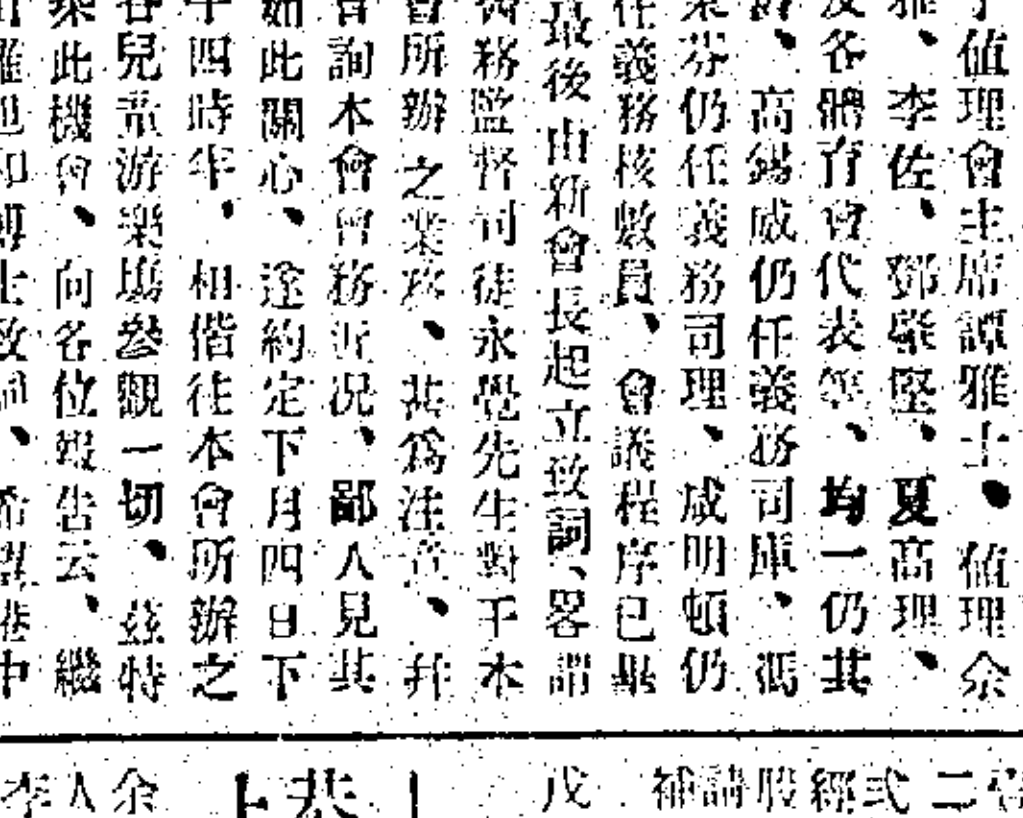 值理會主席譚雅士●值理余
、李佐、鄧肇堅、夏高理、
及各體育會代表等、均一仍其
、高錫威仍任義務司庫、馮
芬仍任義務司理、咸明頓仍
任義務核數員、會議程序已畢
最後由新會長起立致詞、畧謂
務監督司徒永覺先生對于本
會所辦之業務、甚為注意、幷
曾詢本會會務近况、鄙人見其
如此關心、遂約定下月四日下
午四時半、相偕往本會所辦之
各兒童游樂塲參觀一切、茲特
乘此機會、向各位報告云、繼
博士致詞、希望港中
二 弍經股請補 戊
余人李